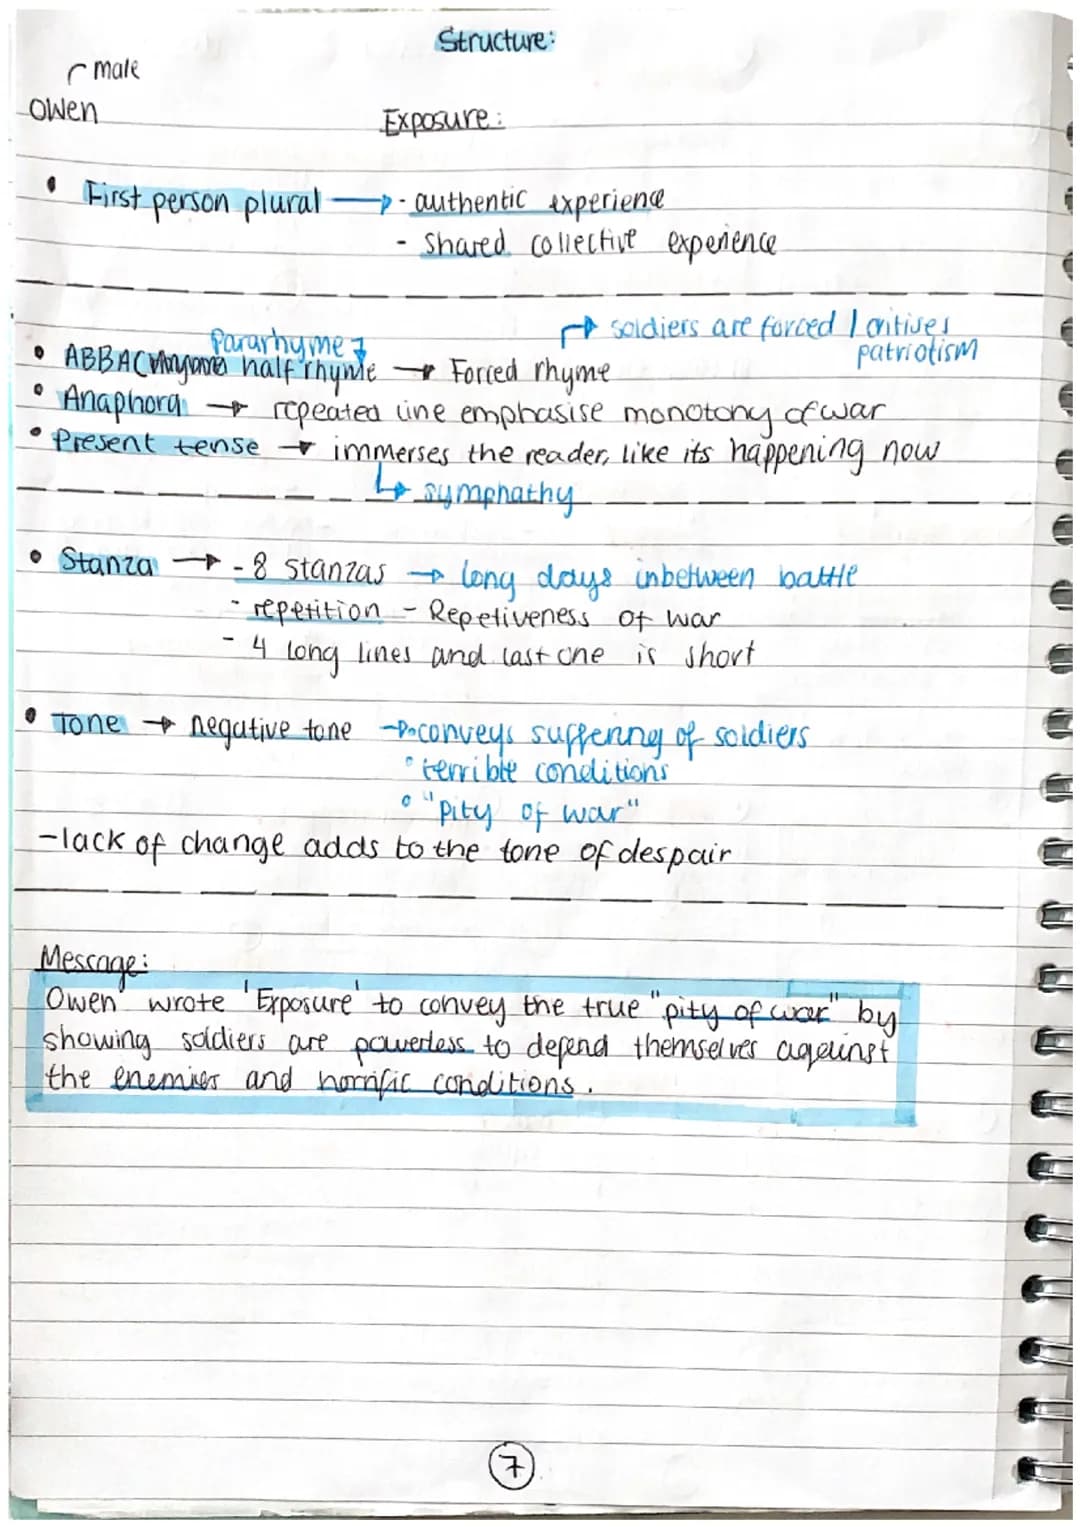 Structure:
male
Owen
Exposure:
• First person plural → - authentic experience
- shared collective experience
soldiers are forced / critises
Pararhyme patriotism
• ABBAC half rhyme → Forced rhyme
• Anaphora → repeated line emphasise monotony of war
• Present tense → immerses the reader, like its happening now
↳ symphathy
• Stanza → - 8 stanzas → long days inbetween battle
- repetition - Repetiveness of war
- 4 long lines and last one is short
• Tone → negative tone → • conveys suffering of soldiers
• terrible conditions
• "pity of war"
- lack of change adds to the tone of despair
Message:
Owen wrote 'Exposure' to convey the true "pity of war" by
showing soldiers are powerless to defend themselves against
the enemies and horrific conditions.
7